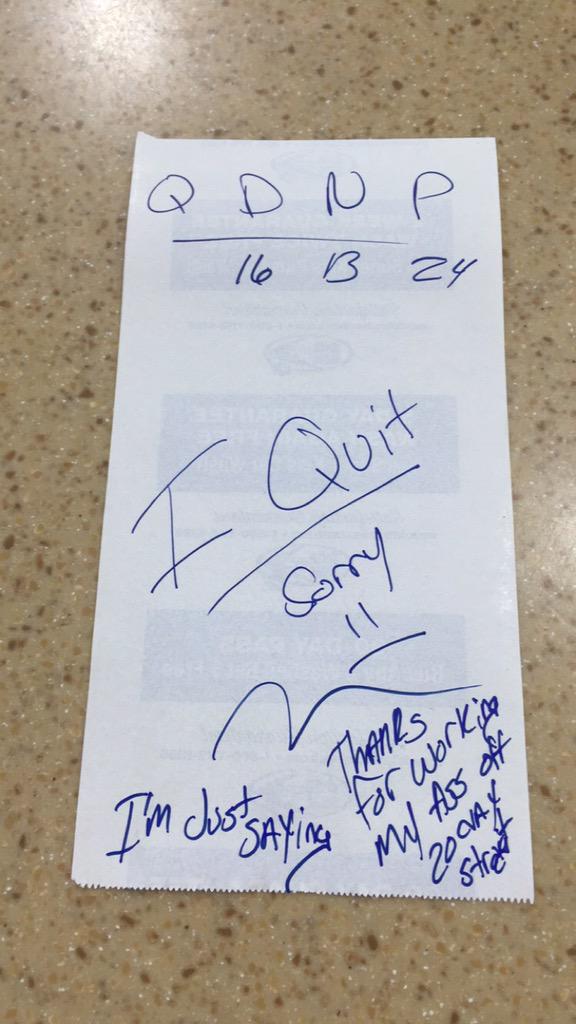 Q D N P
16 13 24
I Quit
Sorry
!!
I'm Just
SAYing
THANKS
For Working
My Ass off
20 DAYS
straight